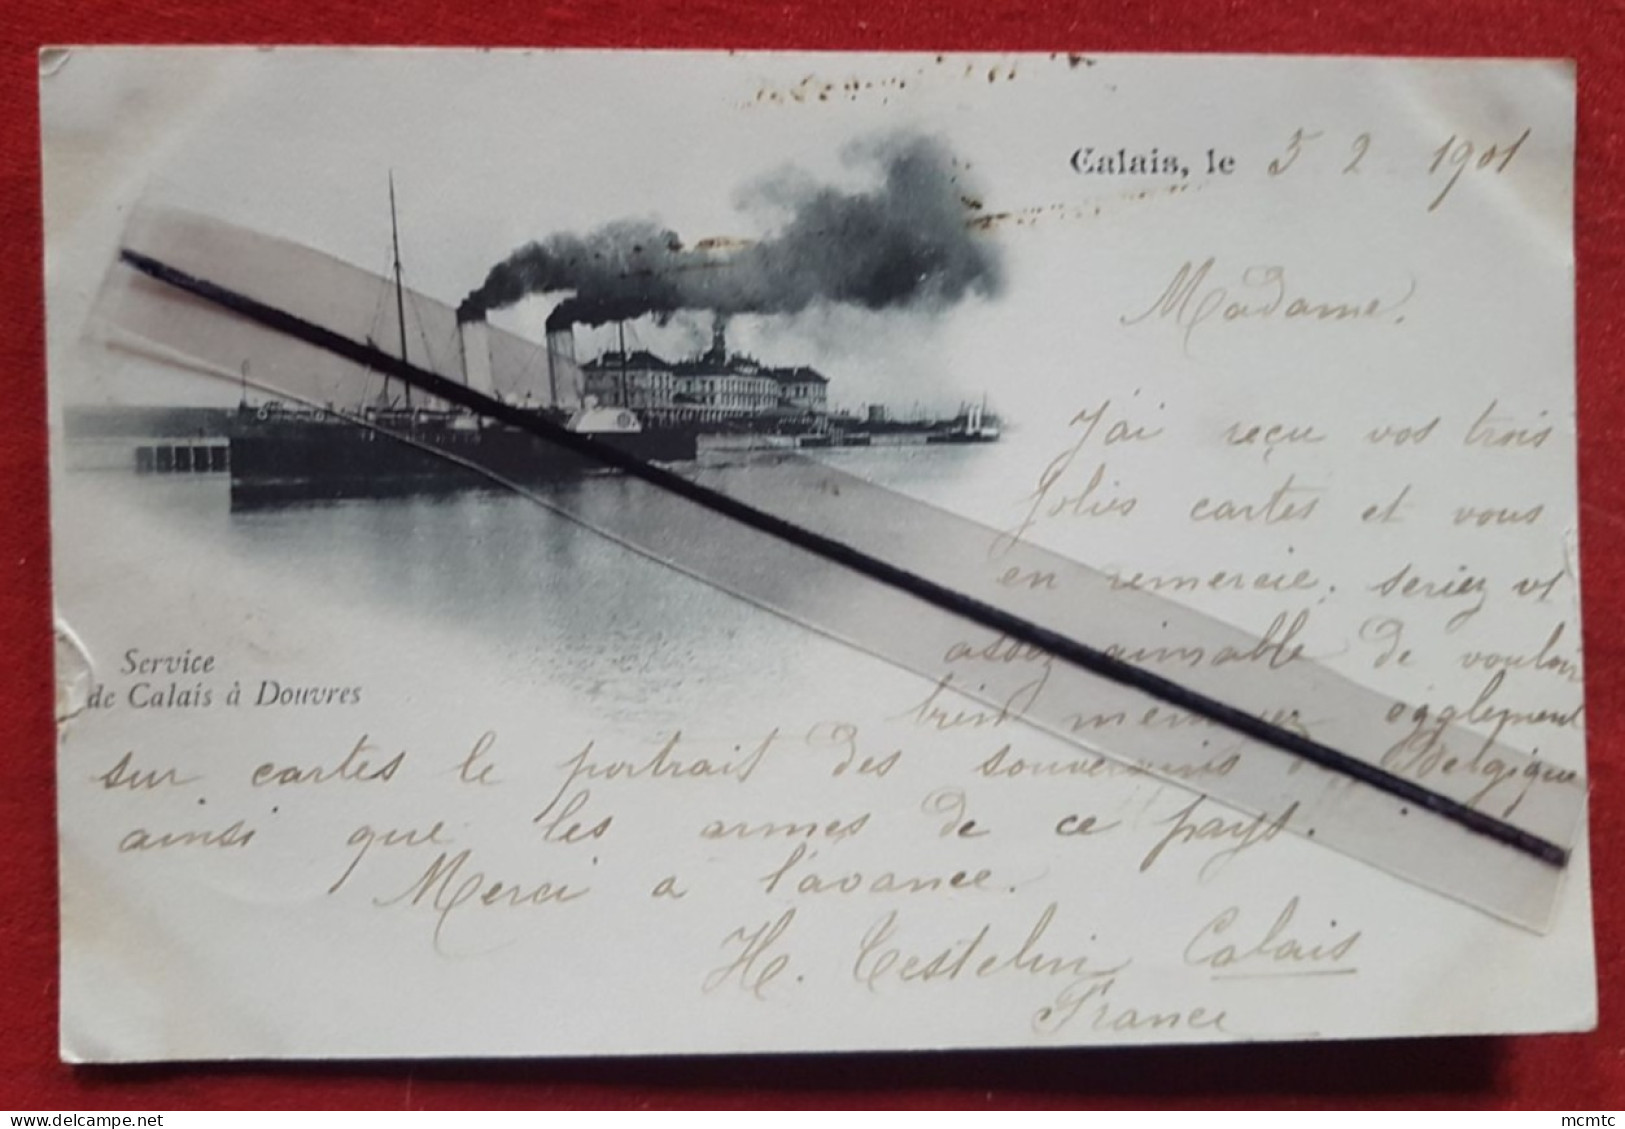 Calais, le 5 2 1901
Madame.
J'ai reçu vos trois
jolies cartes et vous
en remercie. seriez vs
assez aimable de vouloir
bien
sur cartes le portrait des souverains Belgique
ainsi que les armes de ce pays.
Merci a l'avance.
H. Testelin Calais
France
Service
de Calais à Douvres
mcmtc